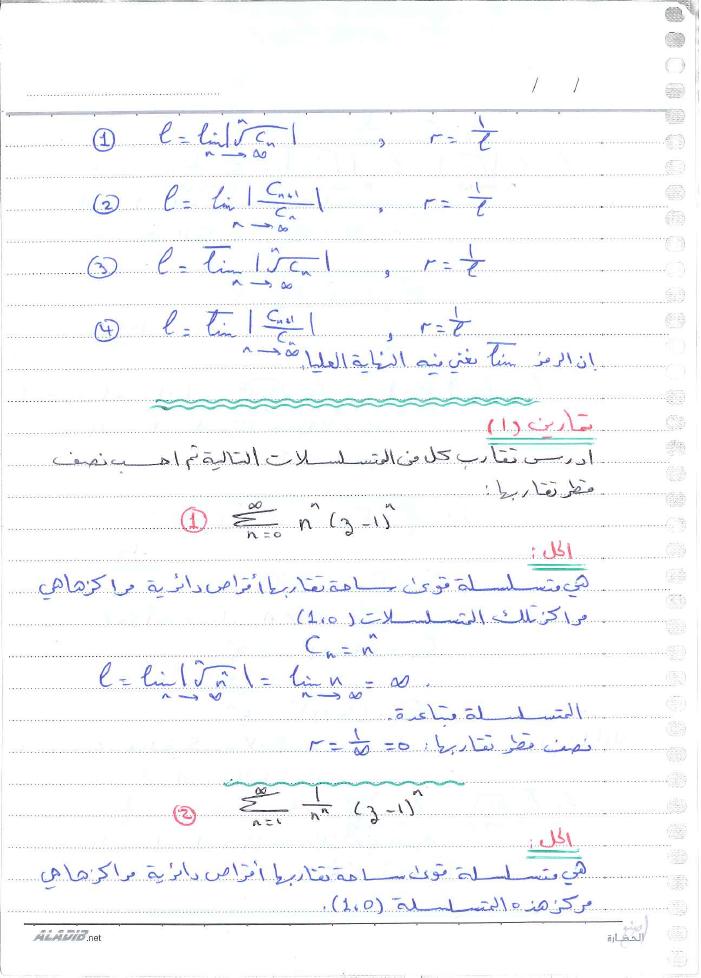 / /
① l = lim_{n→∞} |ⁿ√Cₙ| , r = 1/l
② l = lim_{n→∞} |Cₙ₊₁/Cₙ| , r = 1/l
③ l = l̅i̅m̅_{n→∞} |ⁿ√Cₙ| , r = 1/l
④ l = l̅i̅m̅_{n→∞} |Cₙ₊₁/Cₙ| , r = 1/l
إن الرمز l̅i̅m̅ نعني فيه النهاية العليا.
تمارين (1)
ادرس تقارب كل من المتسلسلات التالية ثم احسب نصف
قطر تقاربها:
① ∑_{n=0}^{∞} nⁿ (z-1)ⁿ
الحل:
هي متسلسلة قوى ساحة تقاربها أقراص دائرية مراكزها هي
مراكز تلك المتسلسلات (1,0)
Cₙ = nⁿ
l = lim_{n→∞} |ⁿ√nⁿ| = lim_{n→∞} n = ∞ .
المتسلسلة متباعدة.
نصف قطر تقاربها: r = 1/∞ = 0
② ∑_{n=1}^{∞} 1/nⁿ (z-1)ⁿ
الحل:
هي متسلسلة قوى ساحة تقاربها أقراص دائرية مراكزها هي
مركز هذه المتسلسلة (1,0).
ALADIB.net
الحضارة